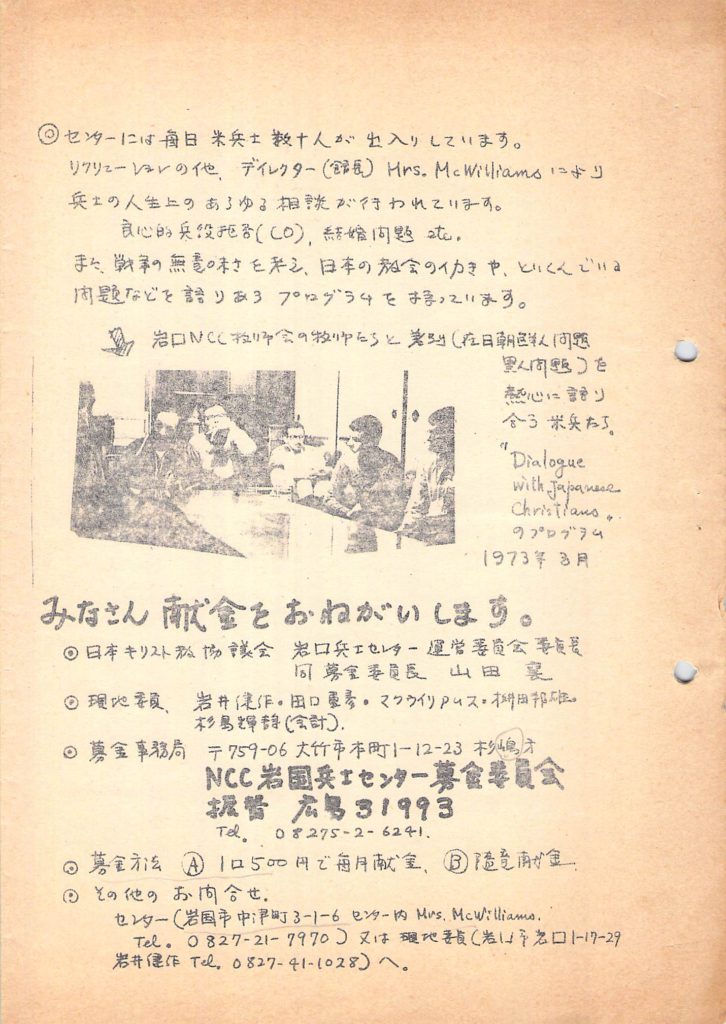 ◎ センターには毎日 米兵士 数十人が 出入りしています。
リクリエーションの他、ディレクター(館長) Mrs. McWilliams により
兵士の人生上の あらゆる 相談が行われています。
良心的兵役拒否(CO), 結婚問題 etc.
また、戦争の無意味さを考え、日本の教会の动きや、とりくんでいる
問題などを語りあう プログラムを 持っています。
岩口NCC牧师会の牧师たちと 差別(在日朝鮮人問題
黒人問題)を
熱心に語り
合う 米兵たち。
"Dialogue
with Japanese
Christians"
のプログラム
1973年3月
みなさん 献金を おねがいします。
◎ 日本キリスト教協議会 岩口兵士センター運営委員会委員長
同募金委員長 山田 襄
◎ 現地委員、岩井健作・田口重彦・マクウイリアムス・桝田邦雄
杉島輝静(会計).
◎ 募金事務局 〒759-06 大竹市本町1-12-23 杉嶋方
NCC岩国兵士センター募金委員会
振替 広島31993
Tel. 08275-2-6241.
◎ 募金方法 Ⓐ 1口500円で毎月献金、Ⓑ 随意献金
◎ その他の お問合せ.
センター(岩国市中津町3-1-6 センター内 Mrs. McWilliams.
Tel. 0827-21-7970) 又は 現地委員(岩口市岩口1-17-29
岩井健作 Tel. 0827-41-1028) へ。